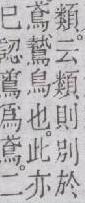 類。云類則別於
鳶鷙鳥也。此亦
已認鷻爲鳶。二